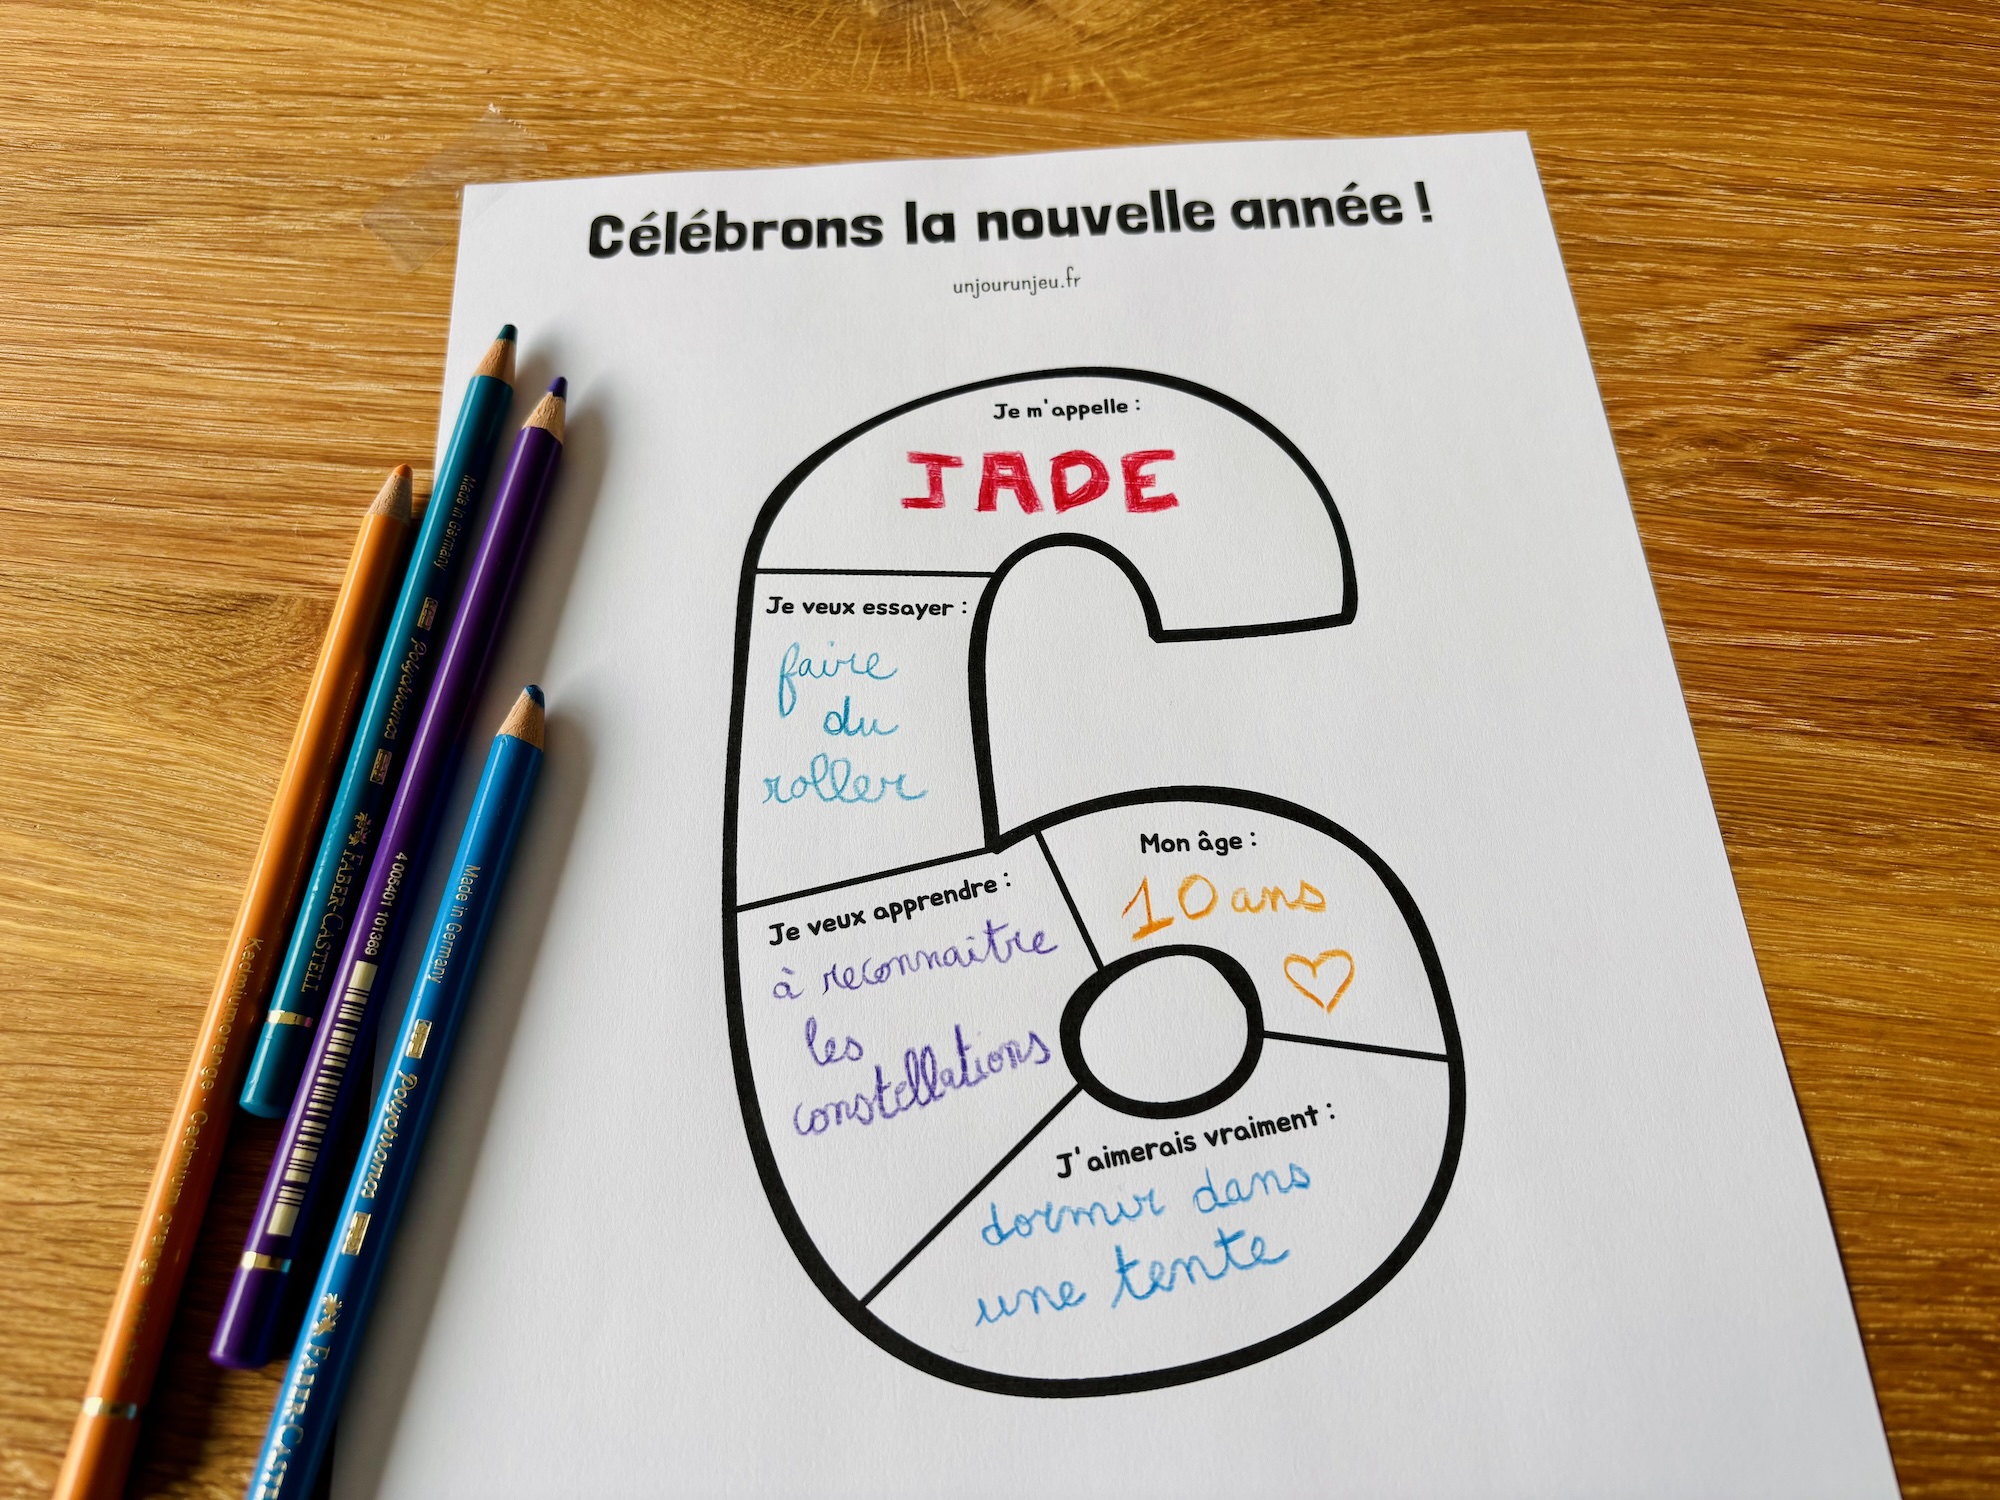 Célébrons la nouvelle année !
unjourunjeu.fr
Je m'appelle :
JADE
Je veux essayer :
faire
du
roller
Mon âge :
10 ans
Je veux apprendre :
à reconnaître
les
constellations
J'aimerais vraiment :
dormir dans
une tente
Made in Germany
Polychromos
FABER-CASTELL
4 005401 101369
Made in Germany
Polychromos
FABER-CASTELL
Kadmiumorange · Cadmium orange